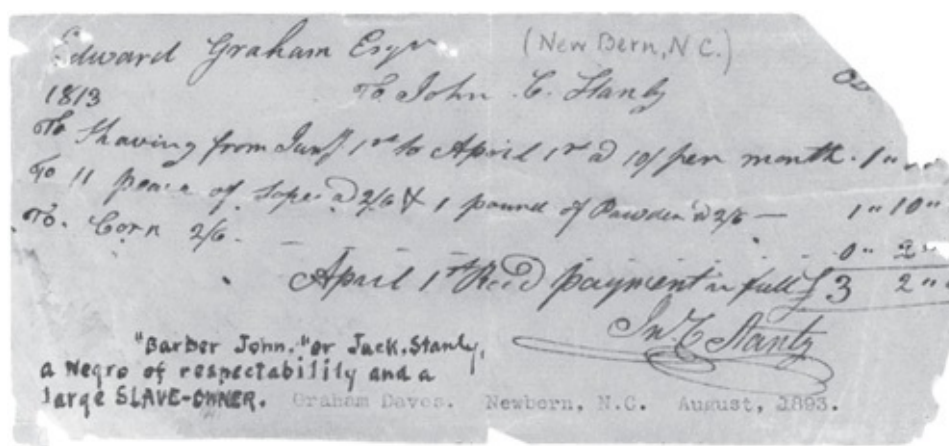 Edward Graham Esqr (New Bern, N.C.)
1813 To John C. Stanly
To Shaving from Jany 1st to April 1st @ 10/ per month. 1 " "
To 11 peace of Sope @ 2/6 & 1 pound of Powder @ 2/6 — 1 " 10 "
To. Corn 2/6. — 0 " 2 "
April 1st Recd payment in full £ 3 2 " "
Jno. C Stanly
"Barber John." or Jack. Stanly,
a Negro of respectability and a
large SLAVE-OWNER. Graham Daves. Newbern, N.C. August, 1893.